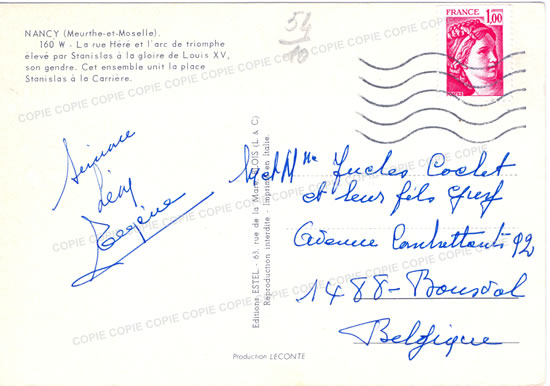 NANCY (Meurthe-et-Moselle).
160 W - La rue Héré et l'arc de triomphe
élevé par Stanislas à la gloire de Louis XV,
son gendre. Cet ensemble unit la place
Stanislas à la Carrière.
54
10
FRANCE
1,00
POSTES
Simone
Léon
Eugène
et Mme Cochet
et leur fils
Avenue Combattants 92
1488 - Bousval
Belgique
Editions ESTEL - 63, rue de la BLOIS (L & C)
Reproduction interdite - Imprimé en Italie.
Production LECONTE
COPIE COPIE COPIE COPIE COPIE COPIE COPIE